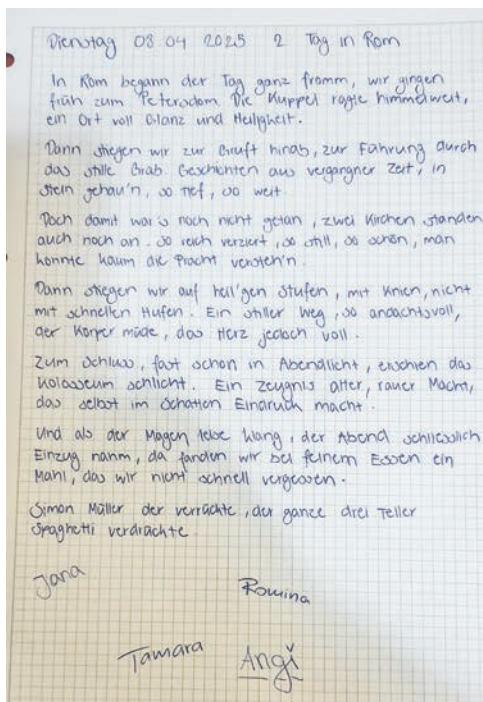 Dienstag 08 04 2025 2 Tag in Rom
In Rom begann der Tag ganz fromm, wir gingen
früh zum Petersdom. Die Kuppel ragte himmelweit,
ein Ort voll Glanz und Heiligkeit.
Dann stiegen wir zur Gruft hinab, zur Führung durch
das stille Grab. Geschichten aus vergangner Zeit, in
Stein gehau'n, so tief, so weit.
Doch damit war's noch nicht getan, zwei Kirchen standen
auch noch an. So reich verziert, so still, so schön, man
konnte kaum die Pracht versteh'n.
Dann stiegen wir auf heil'gen Stufen, mit Knien, nicht
mit schnellen Hufen. Ein stiller Weg, so andachtsvoll,
der Körper müde, das Herz jedoch voll.
Zum Schluss, fast schon in Abendlicht, erschien das
Kolosseum schlicht. Ein Zeugnis alter, rauer Macht,
das selbst im Schatten Eindruck macht.
Und als der Magen leise klang, der Abend schliesslich
Einzug nahm, da fanden wir bei feinem Essen ein
Mahl, das wir nicht schnell vergessen.
Simon Müller der verrückte, der ganze drei Teller
Spaghetti verdrückte.
Jana
Romina
Tamara
Angi